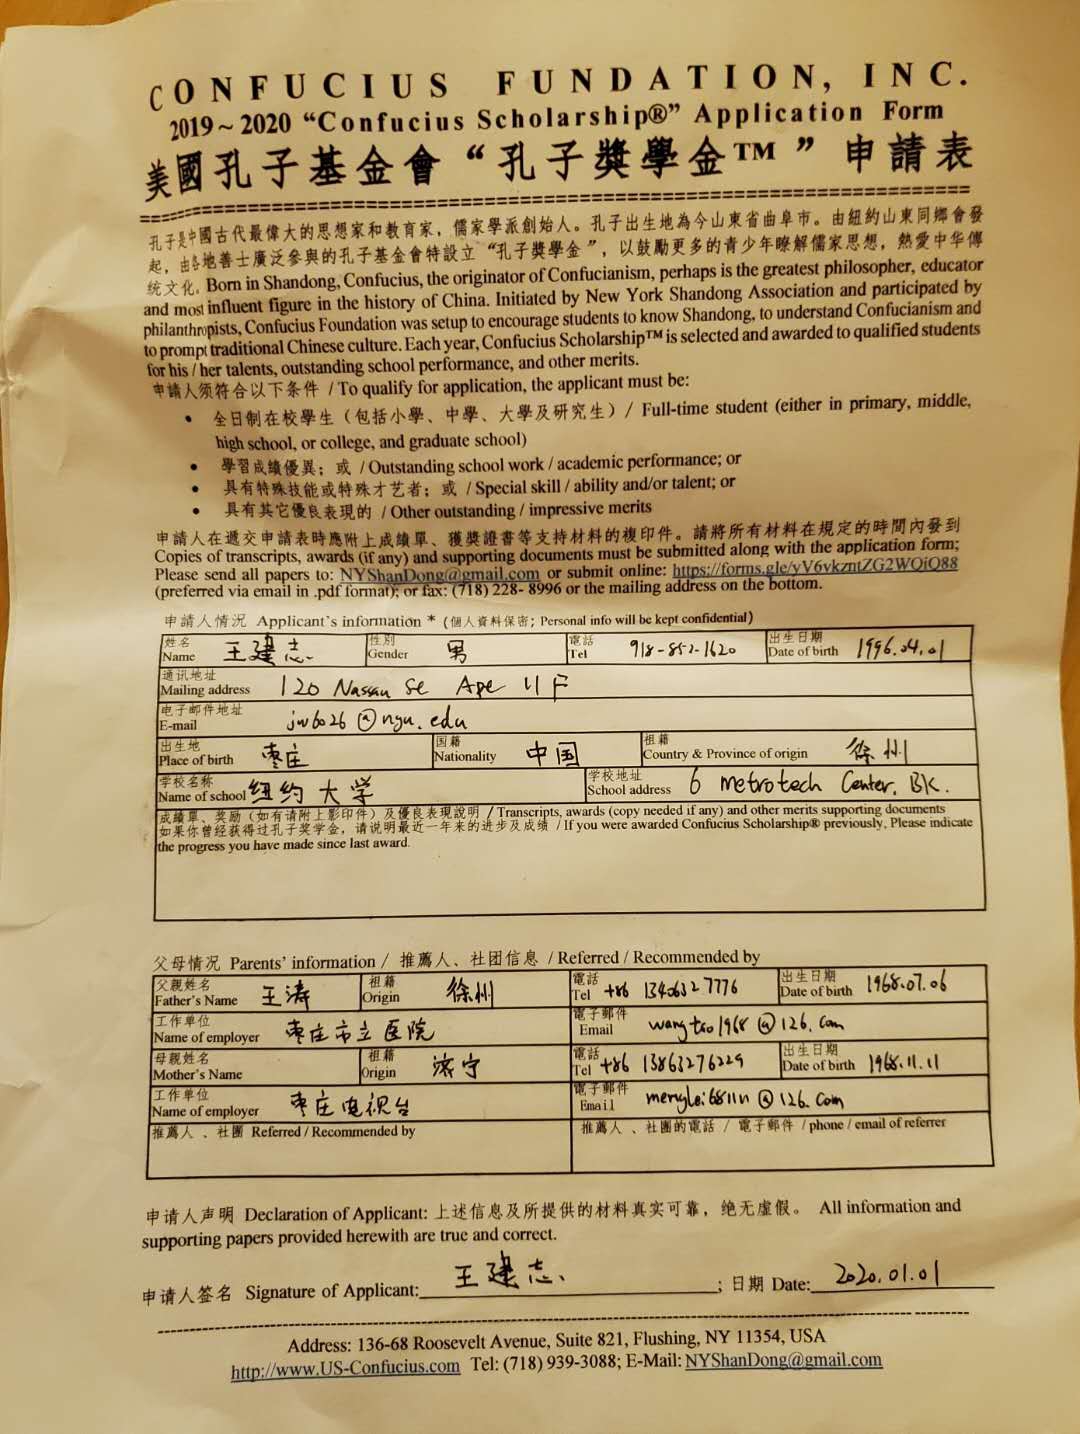 CONFUCIUS FUNDATION, INC.
2019～2020 “Confucius Scholarship®” Application Form
美國孔子基金會“孔子獎學金™”申請表
孔子是中國古代最偉大的思想家和教育家，儒家學派創始人。孔子出生地為今山東省曲阜市。由紐約山東同鄉會發
起，由各地善士廣泛參與的孔子基金會特設立“孔子獎學金”，以鼓勵更多的青少年瞭解儒家思想，熱愛中华傳
统文化。Born in Shandong, Confucius, the originator of Confucianism, perhaps is the greatest philosopher, educator
and most influent figure in the history of China. Initiated by New York Shandong Association and participated by
philanthropists, Confucius Foundation was setup to encourage students to know Shandong, to understand Confucianism and
to prompt traditional Chinese culture. Each year, Confucius Scholarship™ is selected and awarded to qualified students
for his / her talents, outstanding school performance, and other merits.
申請人须符合以下条件 / To qualify for application, the applicant must be:
• 全日制在校學生（包括小學、中學、大學及研究生）/ Full-time student (either in primary, middle,
high school, or college, and graduate school)
• 學習成績優異；或 / Outstanding school work / academic performance; or
• 具有特殊技能或特殊才艺者；或 / Special skill / ability and/or talent; or
• 具有其它優良表現的 / Other outstanding / impressive merits
申請人在遞交申請表時應附上成績單、獲獎證書等支持材料的複印件。請將所有材料在規定的時間內發到
Copies of transcripts, awards (if any) and supporting documents must be submitted along with the application form;
Please send all papers to: NYShanDong@gmail.com or submit online: https://forms.gle/yV6vkzntZG2WQiQ88
(preferred via email in .pdf format); or fax: (718) 228- 8996 or the mailing address on the bottom.
申請人情況 Applicant's information * (個人資料保密; Personal info will be kept confidential)
姓名 Name 王建志 性別 Gender 男 電話 Tel 918-852-1620 出生日期 Date of birth 1996.04.01
通讯地址 Mailing address 120 Nassau St Apt 11F
电子邮件地址 E-mail jw6026@nyu.edu
出生地 Place of birth 枣庄 国籍 Nationality 中国 祖籍 Country & Province of origin 徐州
学校名称 Name of school 纽约大学 学校地址 School address 6 Metrotech Center, BK.
成績單、奖励（如有请附上影印件）及優良表現說明 / Transcripts, awards (copy needed if any) and other merits supporting documents
如果你曾经获得过孔子奖学金，请说明最近一年来的进步及成绩 / If you were awarded Confucius Scholarship® previously, Please indicate
the progress you have made since last award.
父母情况 Parents' information / 推薦人、社团信息 / Referred / Recommended by
父親姓名 Father's Name 王涛 祖籍 Origin 徐州 電話 Tel +86 13406327776 出生日期 Date of birth 1968.07.06
工作單位 Name of employer 枣庄市立医院 電子郵件 Email wangtao1968@126.com
母親姓名 Mother's Name 祖籍 Origin 济宁 電話 Tel +86 13863276229 出生日期 Date of birth 1968.11.11
工作單位 Name of employer 枣庄电视台 電子郵件 Email menglei6811n@126.com
推薦人、社團 Referred / Recommended by 推薦人、社團的電話 / 電子郵件 / phone / email of referrer
申请人声明 Declaration of Applicant: 上述信息及所提供的材料真实可靠，绝无虚假。 All information and
supporting papers provided herewith are true and correct.
申请人签名 Signature of Applicant: 王建志 ; 日期 Date: 2020.01.01
Address: 136-68 Roosevelt Avenue, Suite 821, Flushing, NY 11354, USA
http://www.US-Confucius.com Tel: (718) 939-3088; E-Mail: NYShanDong@gmail.com